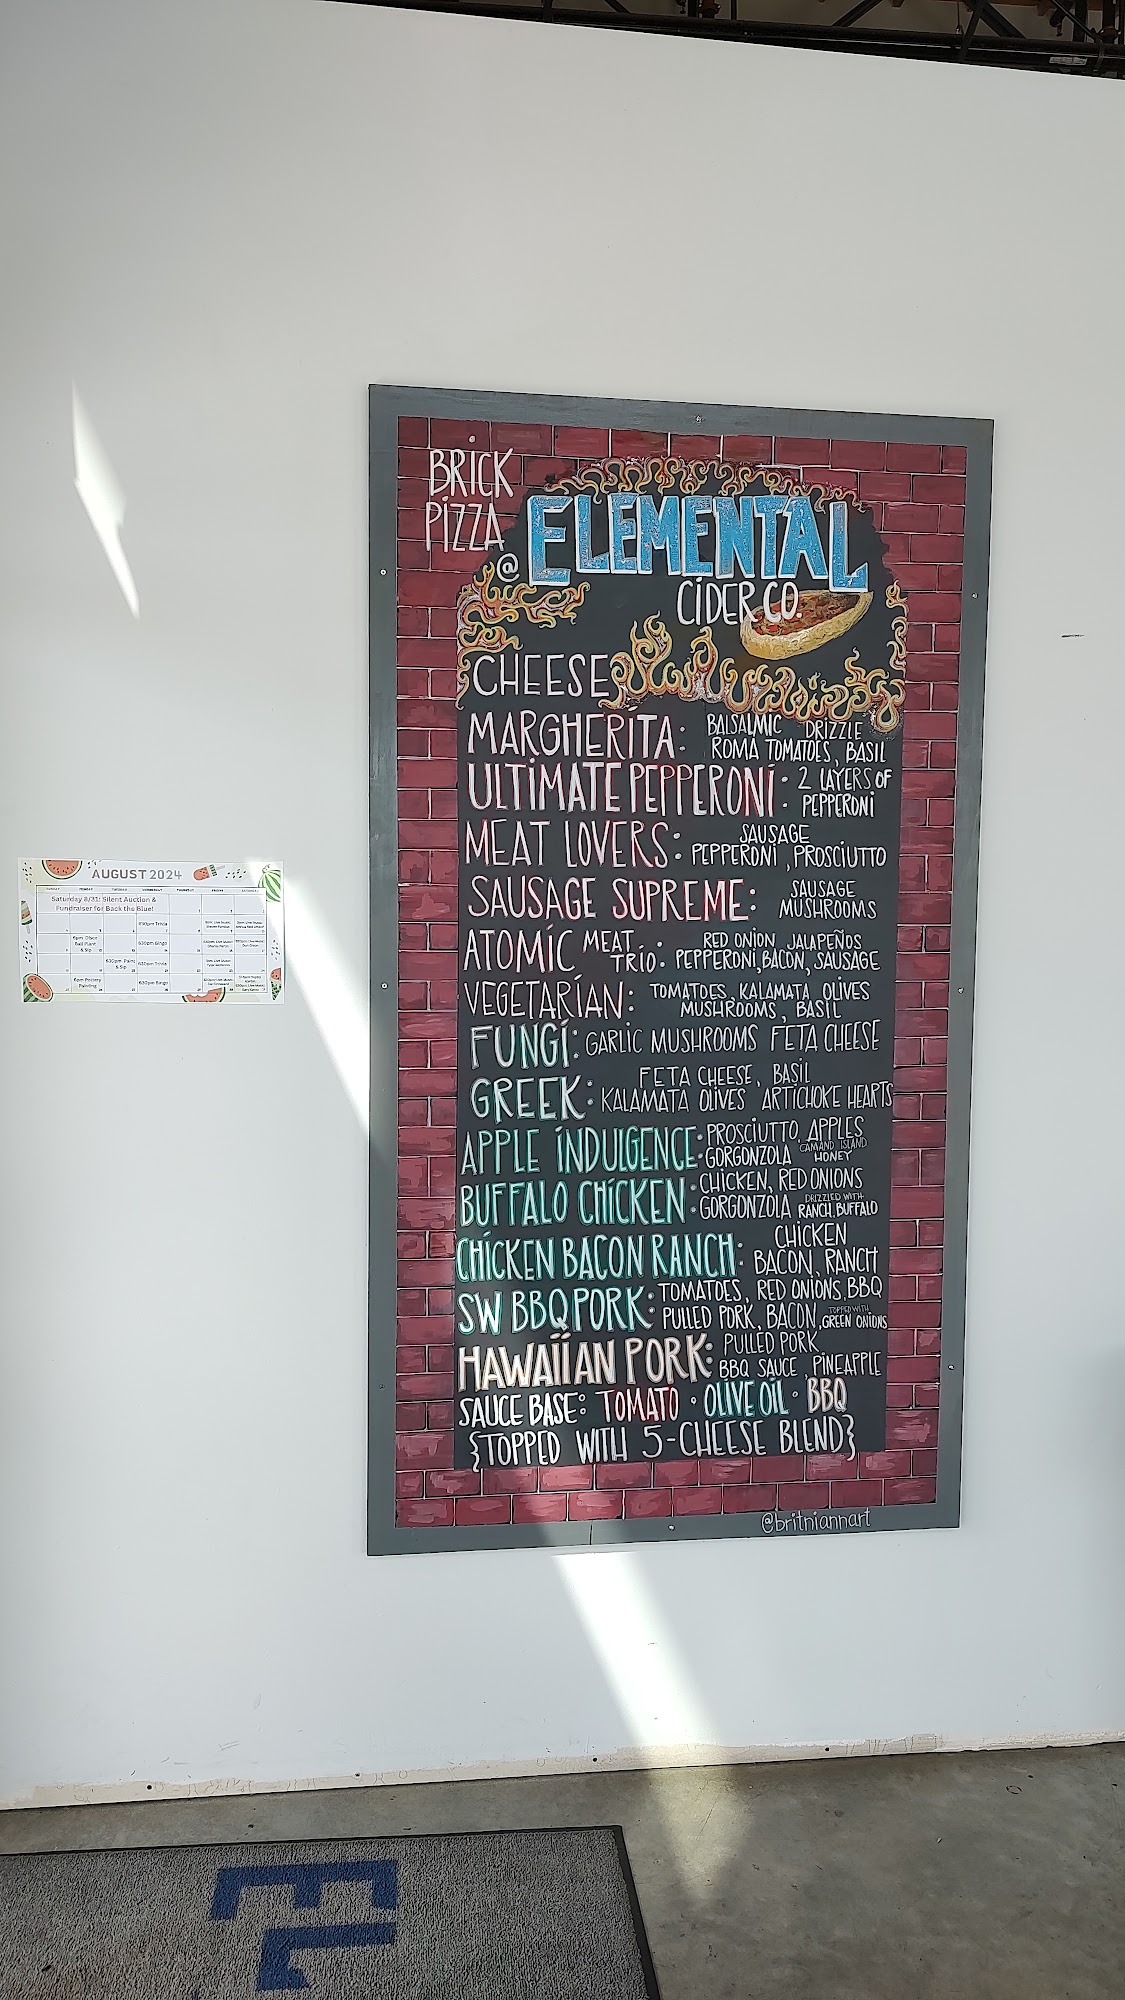 BRICK
PIZZA
@
ELEMENTAL
CIDER CO.
CHEESE
MARGHERITA: BALSALMIC DRIZZLE
ROMA TOMATOES, BASIL
ULTIMATE PEPPERONI: 2 LAYERS OF
PEPPERONI
MEAT LOVERS: SAUSAGE
PEPPERONI, PROSCIUTTO
SAUSAGE SUPREME: SAUSAGE
MUSHROOMS
ATOMIC MEAT TRIO: RED ONION JALAPEÑOS
PEPPERONI, BACON, SAUSAGE
VEGETARIAN: TOMATOES, KALAMATA OLIVES
MUSHROOMS, BASIL
FUNGI: GARLIC MUSHROOMS FETA CHEESE
GREEK: FETA CHEESE, BASIL
KALAMATA OLIVES ARTICHOKE HEARTS
APPLE INDULGENCE: PROSCIUTTO, APPLES
GORGONZOLA CAMANO ISLAND HONEY
BUFFALO CHICKEN: CHICKEN, RED ONIONS
GORGONZOLA DRIZZLED WITH RANCH, BUFFALO
CHICKEN BACON RANCH: CHICKEN
BACON, RANCH
SW BBQ PORK: TOMATOES, RED ONIONS, BBQ
PULLED PORK, BACON, TOPPED WITH GREEN ONIONS
HAWAIIAN PORK: PULLED PORK
BBQ SAUCE, PINEAPPLE
SAUCE BASE: TOMATO • OLIVE OIL • BBQ
{TOPPED WITH 5-CHEESE BLEND}
@britniannart
AUGUST 2024
Saturday 8/31: Silent Auction &
Fundraiser for Back the Blue!
630pm Trivia
630pm Bingo
630pm Trivia
6pm Pottery
Painting
630pm Bingo
EL